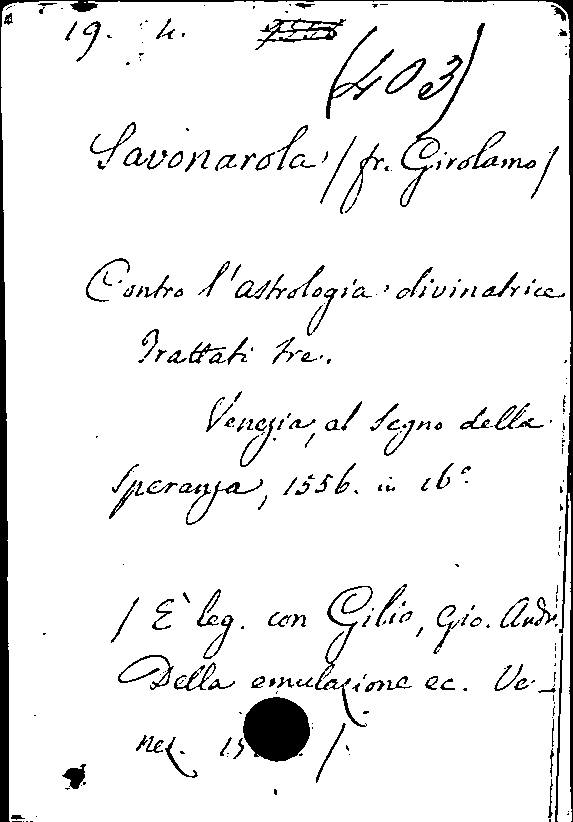 19. 4.
(403)
Savonarola /fr. Girolamo/
Contro l'astrologia divinatrice
Trattati tre.
Venezia, al Segno della
Speranza, 1556. in 16°.
/ È leg. con Gilio, Gio. Andr.
Della emulazione ec. Ve-
nez. /.